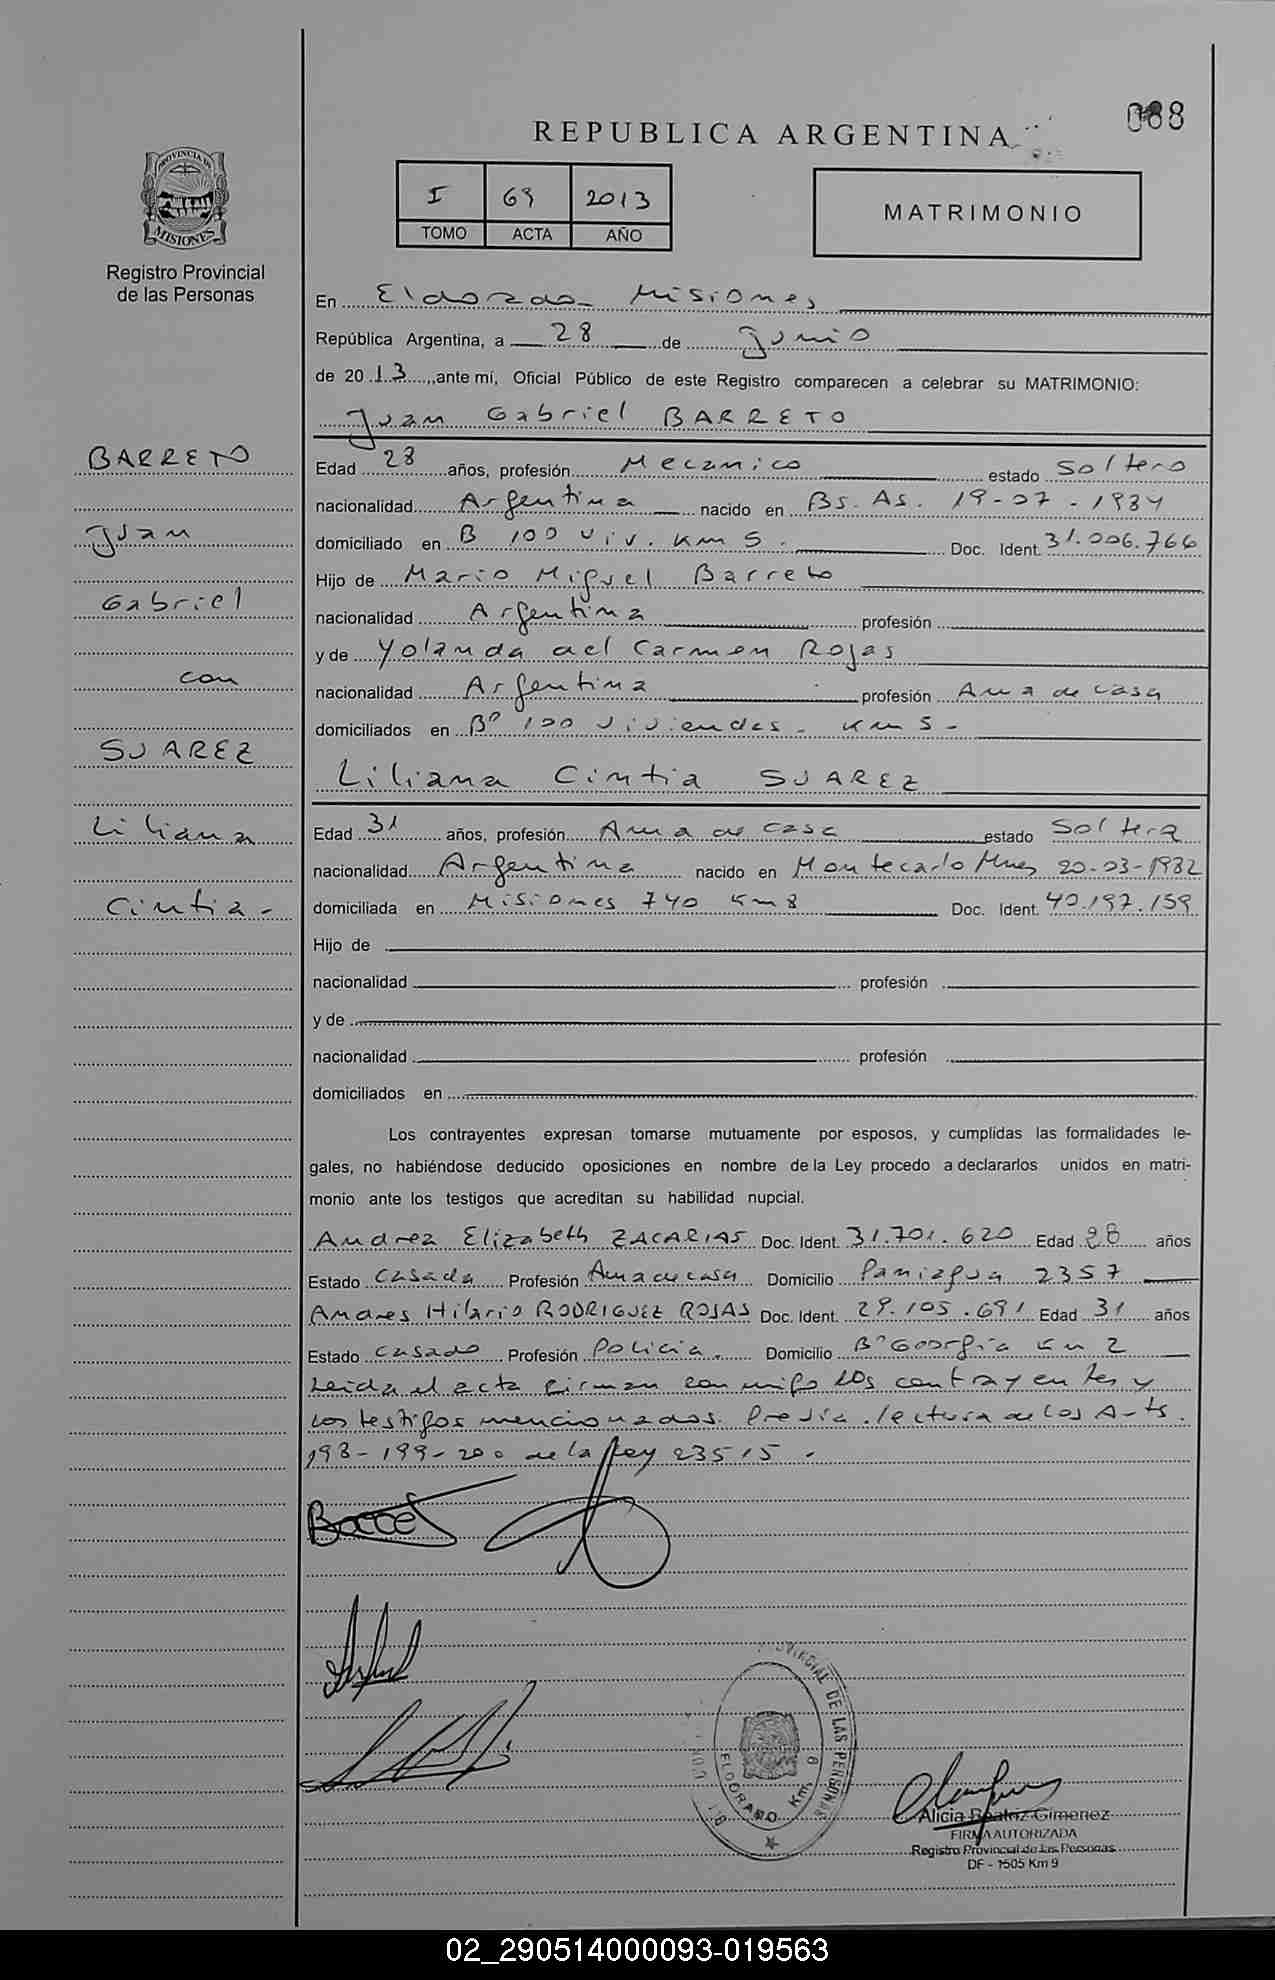 088
REPUBLICA ARGENTINA
I 69 2013
TOMO ACTA AÑO
MATRIMONIO
PROVINCIA DE
MISIONES
Registro Provincial
de las Personas
En Eldorado Misiones
República Argentina, a 28 de Junio
de 2013, ante mí, Oficial Público de este Registro comparecen a celebrar su MATRIMONIO:
Juan Gabriel BARRETO
BARRETO
Juan
Gabriel
con
SUAREZ
Liliana
Cintia-
Edad 28 años, profesión Mecanico estado Soltero
nacionalidad Argentina nacido en Bs. As. 19-07-1984
domiciliado en B 100 Viv. Km 5. Doc. Ident. 31.006.766
Hijo de Mario Miguel Barreto
nacionalidad Argentina profesión
y de Yolanda del Carmen Rojas
nacionalidad Argentina profesión Ama de casa
domiciliados en Bº 100 Viviendas - Km 5-
Liliana Cintia SUAREZ
Edad 31 años, profesión Ama de casa estado Soltera
nacionalidad Argentina nacido en Montecarlo Mnes 20-03-1982
domiciliada en Misiones 740 Km 8 Doc. Ident. 40.197.159
Hijo de
nacionalidad profesión
y de
nacionalidad profesión
domiciliados en
Los contrayentes expresan tomarse mutuamente por esposos, y cumplidas las formalidades le-
gales, no habiéndose deducido oposiciones en nombre de la Ley procedo a declararlos unidos en matri-
monio ante los testigos que acreditan su habilidad nupcial.
Andrea Elizabeth ZACARIAS Doc. Ident. 31.701.620 Edad 28 años
Estado Casada Profesión Ama de casa Domicilio Paniagua 2357
Andres Hilario RODRIGUEZ ROJAS Doc. Ident. 29.105.691 Edad 31 años
Estado Casado Profesión Policia. Domicilio Bº Georgia Km 2
Leida el acta firman conmigo los contrayentes y
los testigos mencionados. Previa lectura de los Arts.
198-199-200 de la Ley 23515.
PROVINCIAL DE LAS PERSONAS
ELDORADO Km 9
Alicia Beatriz Gimenez
FIRMA AUTORIZADA
Registro Provincial de las Personas
DF - 1505 Km 9
02_290514000093-019563